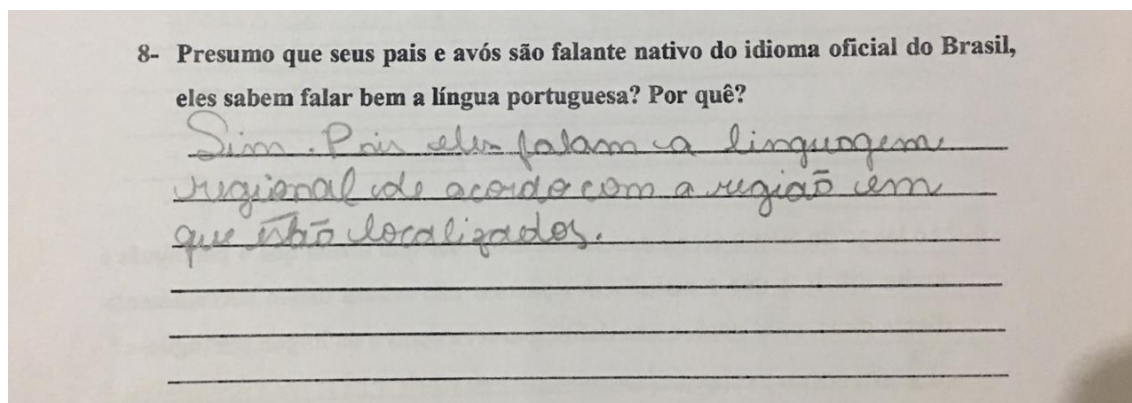 8- Presumo que seus pais e avós são falante nativo do idioma oficial do Brasil,
eles sabem falar bem a língua portuguesa? Por quê?
Sim. Pois eles falam a linguagem
regional de acordo com a região em
que estão localizados.